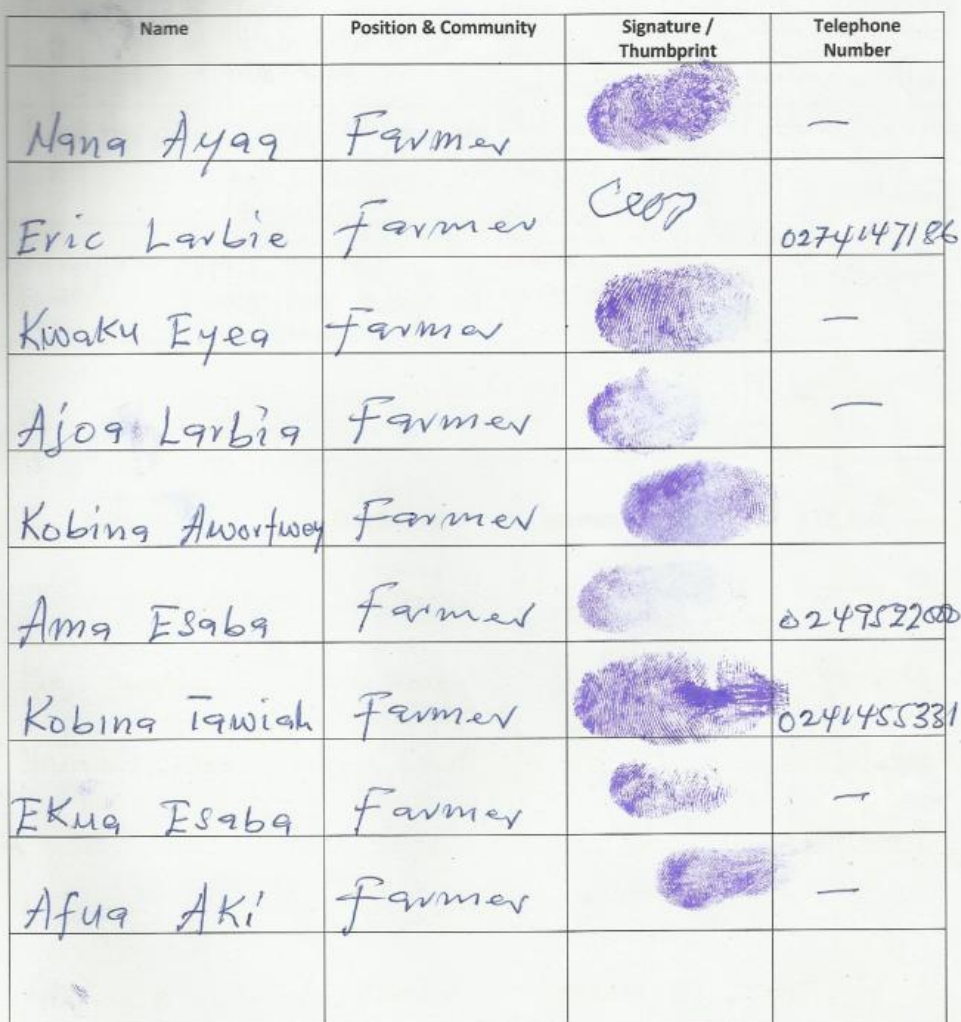 Name Position & Community Signature / Thumbprint Telephone Number
Nana Ayaa Farmer —
Eric Larbie Farmer 0274147186
Kwaku Eyea Farmer —
Ajoa Larbia Farmer —
Kobina Awortwey Farmer
Ama Esaba Farmer 0249522000
Kobina Tawiah Farmer 0241455331
Ekua Esaba Farmer —
Afua Aki Farmer —